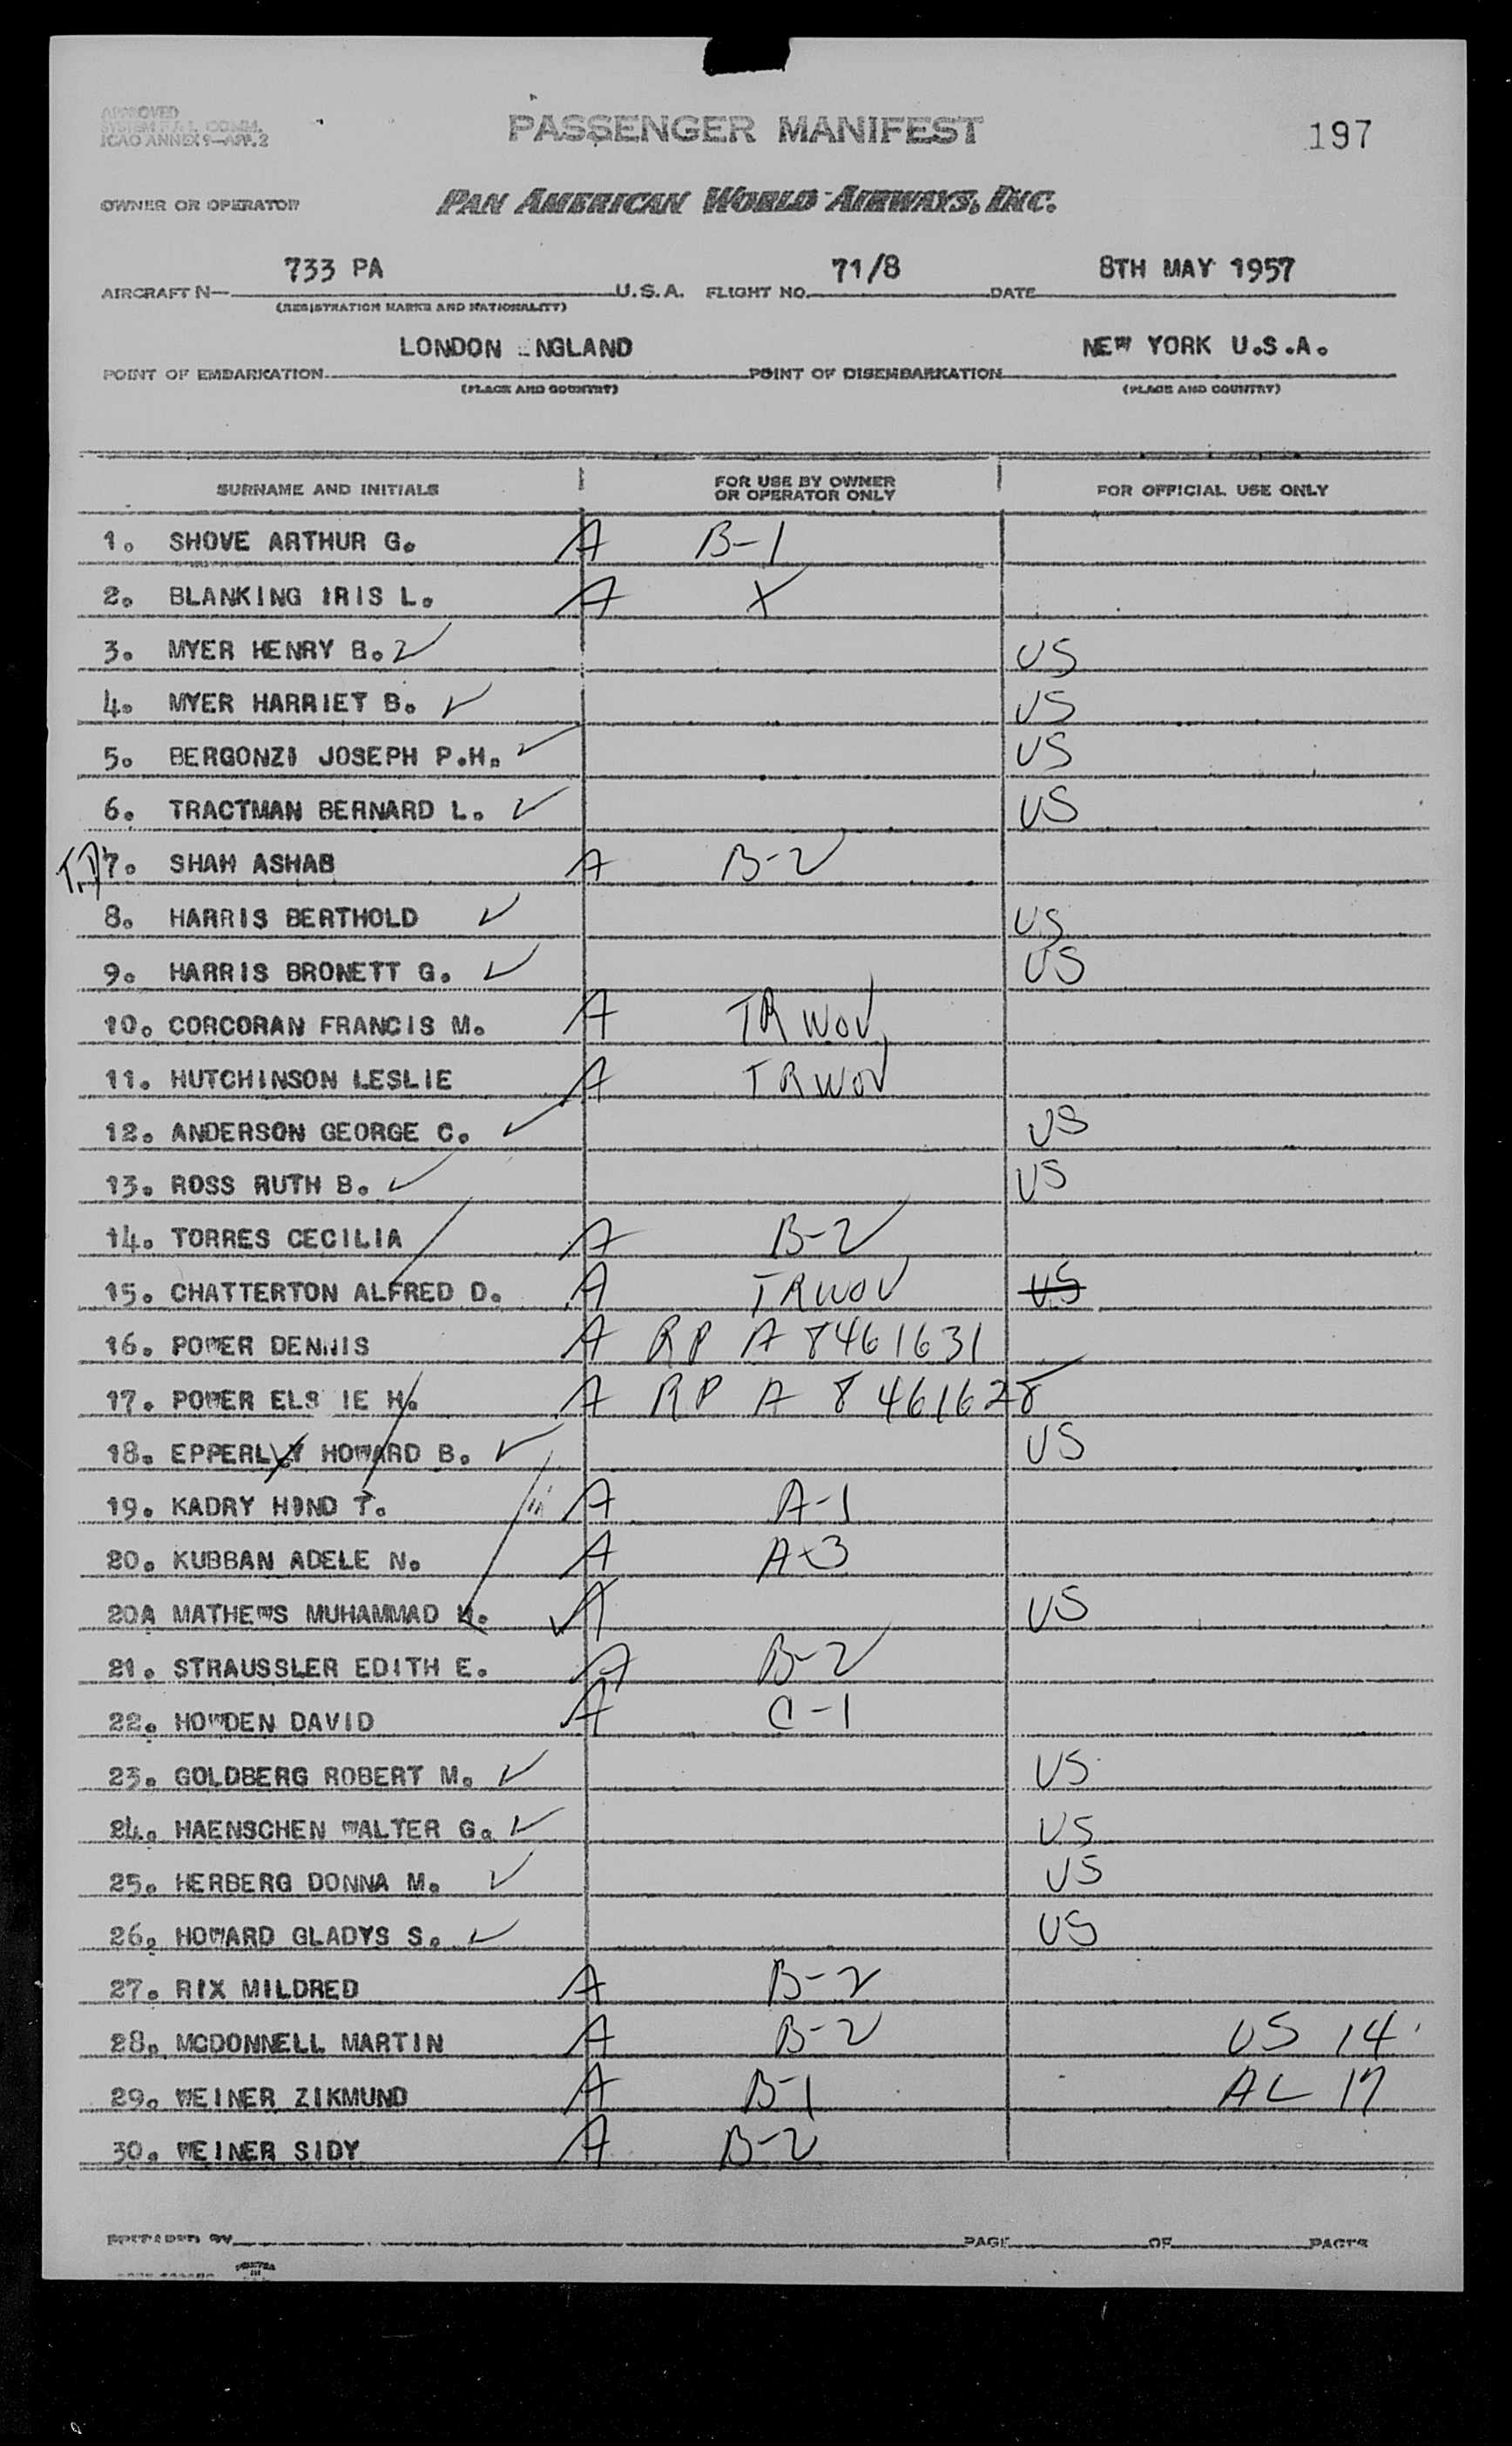 APPROVED
SYSTEM F.A.L. COMM.
ICAO ANNEX 9—APP.2
PASSENGER MANIFEST
197
OWNER OR OPERATOR
PAN AMERICAN WORLD AIRWAYS, INC.
AIRCRAFT N— 733 PA U.S.A. FLIGHT NO. 71/8 DATE 8TH MAY 1957
(REGISTRATION MARKS AND NATIONALITY)
POINT OF EMBARKATION LONDON ENGLAND POINT OF DISEMBARKATION NEW YORK U.S.A.
(PLACE AND COUNTRY) (PLACE AND COUNTRY)
SURNAME AND INITIALS FOR USE BY OWNER OR OPERATOR ONLY FOR OFFICIAL USE ONLY
1. SHOVE ARTHUR G. A B-1
2. BLANKING IRIS L. A X
3. MYER HENRY B. ✓ US
4. MYER HARRIET B. ✓ US
5. BERGONZI JOSEPH P.H. ✓ US
6. TRACTMAN BERNARD L. ✓ US
7. SHAH ASHAB A B-2
8. HARRIS BERTHOLD ✓ US
9. HARRIS BRONETT G. ✓ US
10. CORCORAN FRANCIS M. A TRWOV
11. HUTCHINSON LESLIE A TRWOV
12. ANDERSON GEORGE C. ✓ US
13. ROSS RUTH B. ✓ US
14. TORRES CECILIA A B-2
15. CHATTERTON ALFRED D. A TRWOV US
16. POWER DENNIS A RP A 8461631
17. POWER ELSIE H. A RP A 8461628
18. EPPERLY HOWARD B. ✓ US
19. KADRY HIND T. A A-1
20. KUBBAN ADELE N. A A-3
20A MATHEWS MUHAMMAD H. A US
21. STRAUSSLER EDITH E. A B-2
22. HOWDEN DAVID A C-1
23. GOLDBERG ROBERT M. ✓ US
24. HAENSCHEN WALTER G. ✓ US
25. HERBERG DONNA M. ✓ US
26. HOWARD GLADYS S. ✓ US
27. RIX MILDRED A B-2
28. MCDONNELL MARTIN A B-2 US 14
29. WEINER ZIKMUND A B-1 AL 17
30. WEINER SIDY A B-2
PREPARED BY PAGE OF PAGES